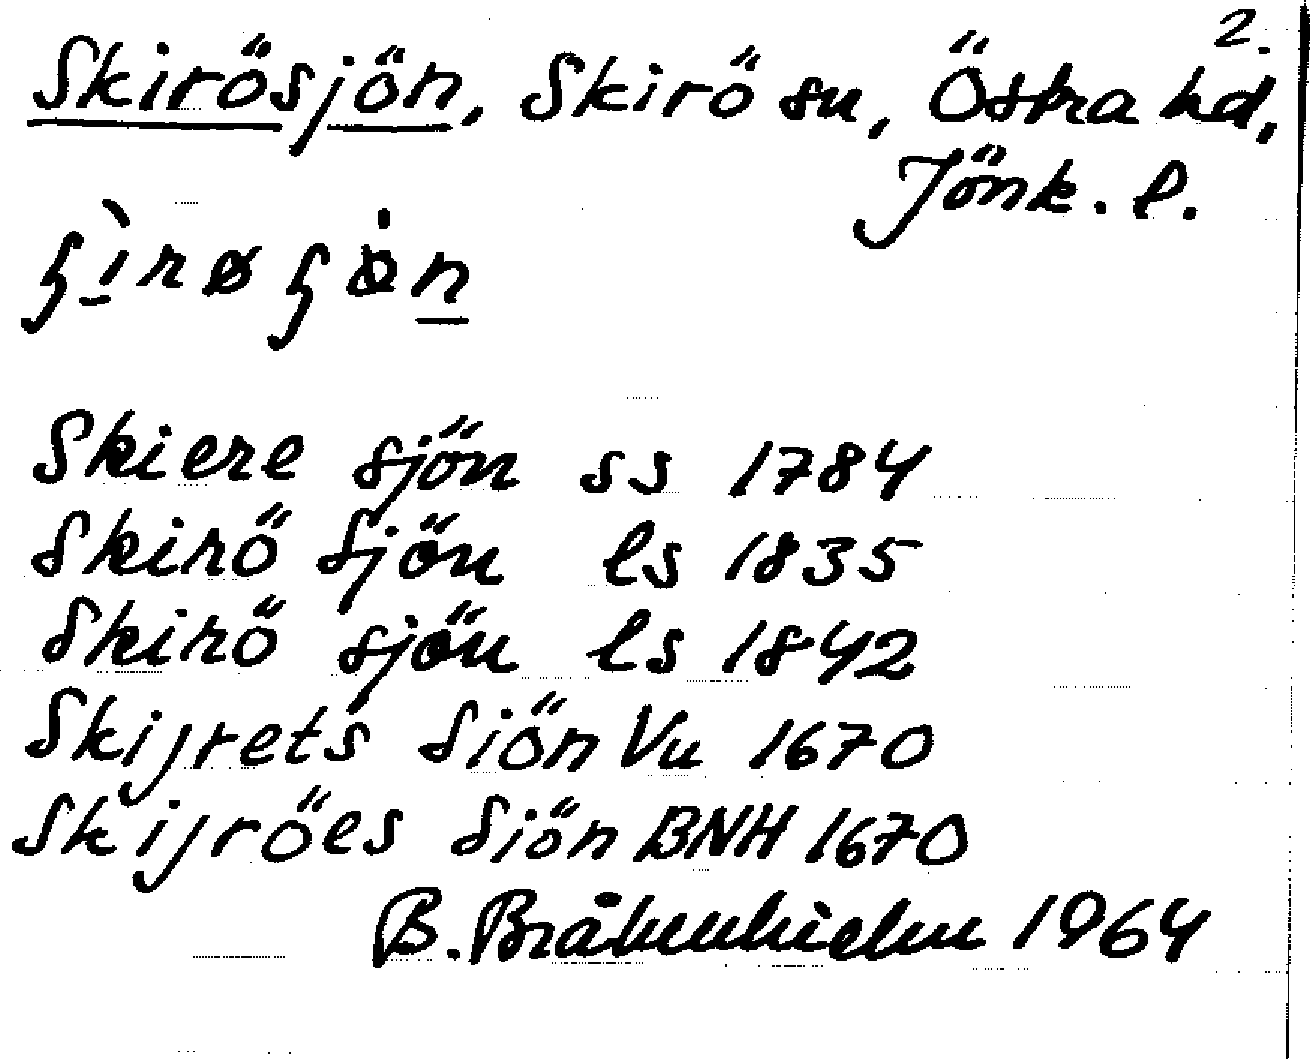 2.
Skirösjön, Skirö sn, Östra hd,
Jönk. l.
Skiere sjön ss 1784
Skirö Sjön ls 1835
Skirö sjön ls 1842
Skijrets Siön Vu 1670
Skijröes Siön BNH 1670
B. Bråkenhielm 1964